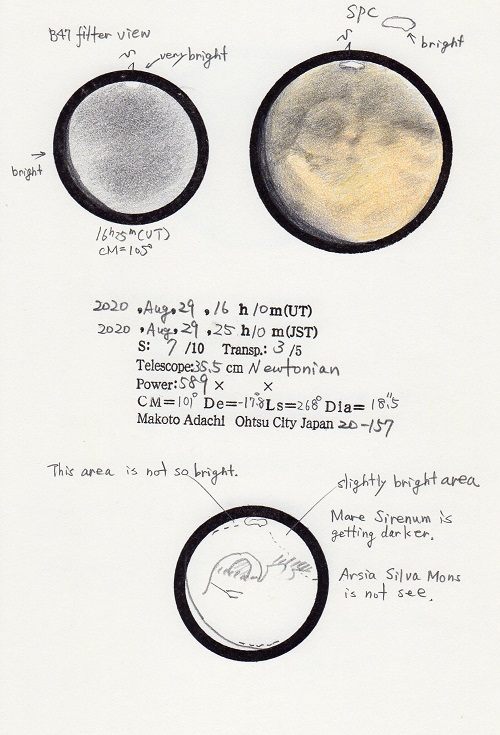 B47 filter view
very bright
bright
16h25m(UT)
CM=105°
SPC
bright
2020 , Aug, 29 , 16 h 10 m(UT)
2020 , Aug, 29 , 25 h 10 m(JST)
S: 7 /10 Transp.: 3 /5
Telescope:35.5 cm Newtonian
Power:589 × ×
CM=101° De=-17.8° Ls=268° Dia= 18".5
Makoto Adachi Ohtsu City Japan 20-157
This area is not so bright.
slightly bright area
Mare Sirenum is
getting darker.
Arsia Silva Mons
is not see.